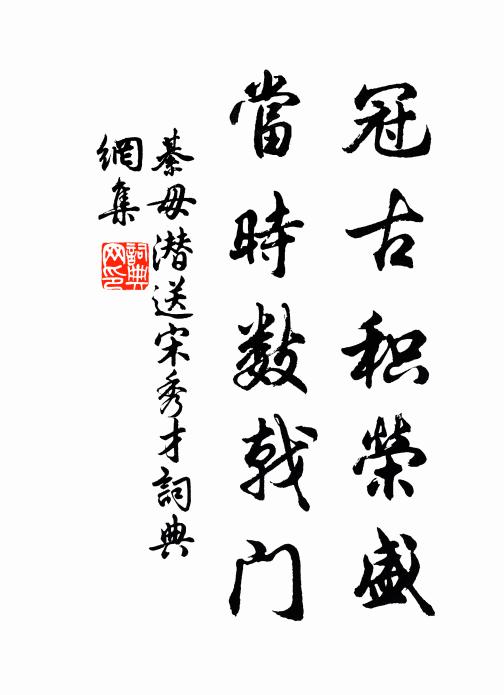 冠古积榮盛
當時數戟門
綦毋潜送宋秀才詞典
網集
詞典
网印